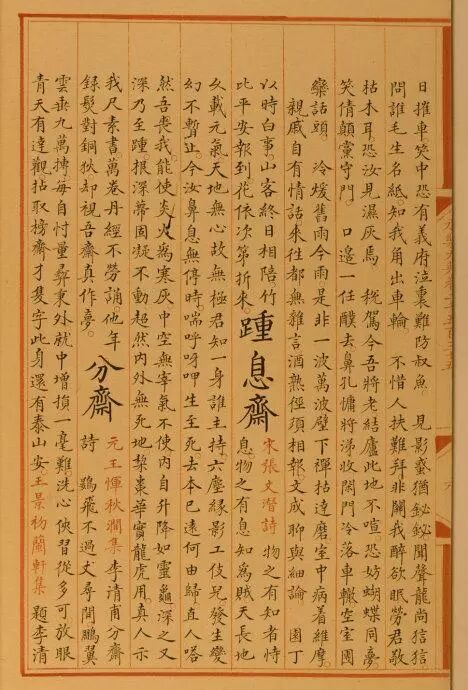 日摧車笑中恐有義府泣裏難防叔魚　見影蠆猶鉍鉍聞聲尨尚狺狺
問誰毛生名紙知我角出車輪　不惜人扶難拜非關我醉欲眠勞君敬
枯木耳恐汝見濕灰焉　稅駕今吾將老結廬此地不喧恐妨蝴蝶同夢
笑倩顛黨守門　口邉一任醭去鼻孔慵將涕收閑門冷落車轍空室團
欒話頭　冷煖舊雨今雨是非一波萬波壁下禪枯達磨室中病着維摩
親戚自有情話来往都無雜言酒熟徑須相報文成聊與細論　園丁
以時白事山客終日相陪竹
比平安報到花依次第折来
踵息齋
宋張文潛詩　物之有知者恃
息物之有息知為賊天長地
久載元氣天地無心故無極君知一身誰主持六塵緣影工伎兒發生變
幻不暫止今汝鼻息無停時喘呼呀呷生至死去本已遠何由歸直人嗒
然吾喪我能使炎火為寒灰中空無宰氣不使内自升降如靈龜深之又
深乃至踵根深蒂固凝不動超然内外無死地棃棗華實龍虎用真人示
我尺素書萬卷丹經不勞誦他年
録髮對銅狄却視吾齋真作夢
分齋
元王惲秋澗集　李清甫分齋
詩　鷃飛不過丈尋間鵬翼
雲垂九萬摶每自忖量彛秉外就中增損一毫難洗心俠習從多可放眼
青天有達觀拈取榜齋才隻字此身還有泰山安王景初蘭軒集　題李清